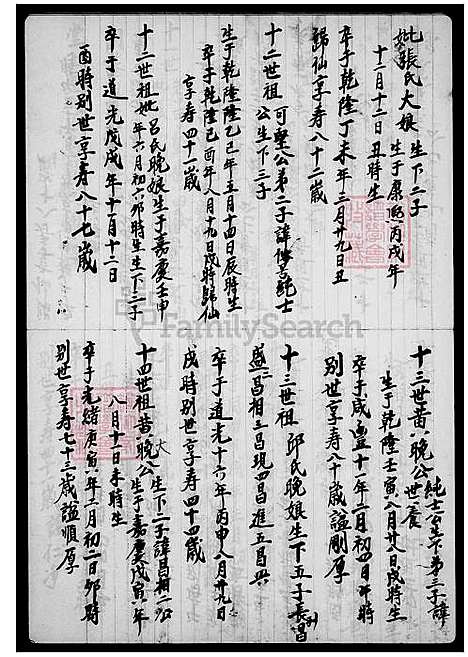 妣張氏大娘 生下二子
生于康熙丙戌年
十二月十二日丑時生
卒于乾隆丁未年三月廿九日丑
歸仙享寿八十二歲
十二世祖 可堅公第二子諱 純士
公生下三子
生于乾隆乙巳年五月十四日辰時生
卒于乾隆己酉年八月十九日戌時歸仙
享寿四十一歲
十二世祖妣 呂氏晚娘生于嘉慶壬申
年六月初六卯時生 生下二子
卒于道光戊戌年十一月十二日
酉時别世享寿八十七歲
十三世黃八晚公 純士公生下第三子諱
世養
生于乾隆壬寅八月廿八日戌時生
卒于咸豐十一年二月初四日午時
别世享寿八十歲謚剛厚
十三世祖 邱氏晚娘生下五子長昌
盛二昌相三昌現四昌進五昌興
卒于道光十六年丙申八月廿九日
戌時别世享寿四十四歲
十四世祖黃晚公 生下二子諱昌相二公
大
生于嘉慶戊寅年
八月十一日未時生
卒于光緒庚寅年二月初二日卯時
别世享寿七十三歲謚順厚
FamilySearch